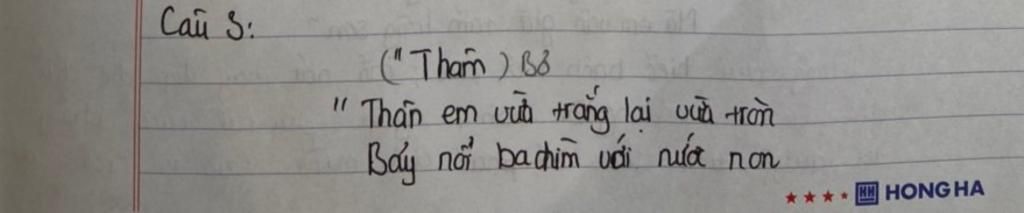 Câu 3:
("Thân) Bỏ
" Thân em vừa trắng lại vừa tròn
Bảy nổi ba chìm với nước non
HONG HA